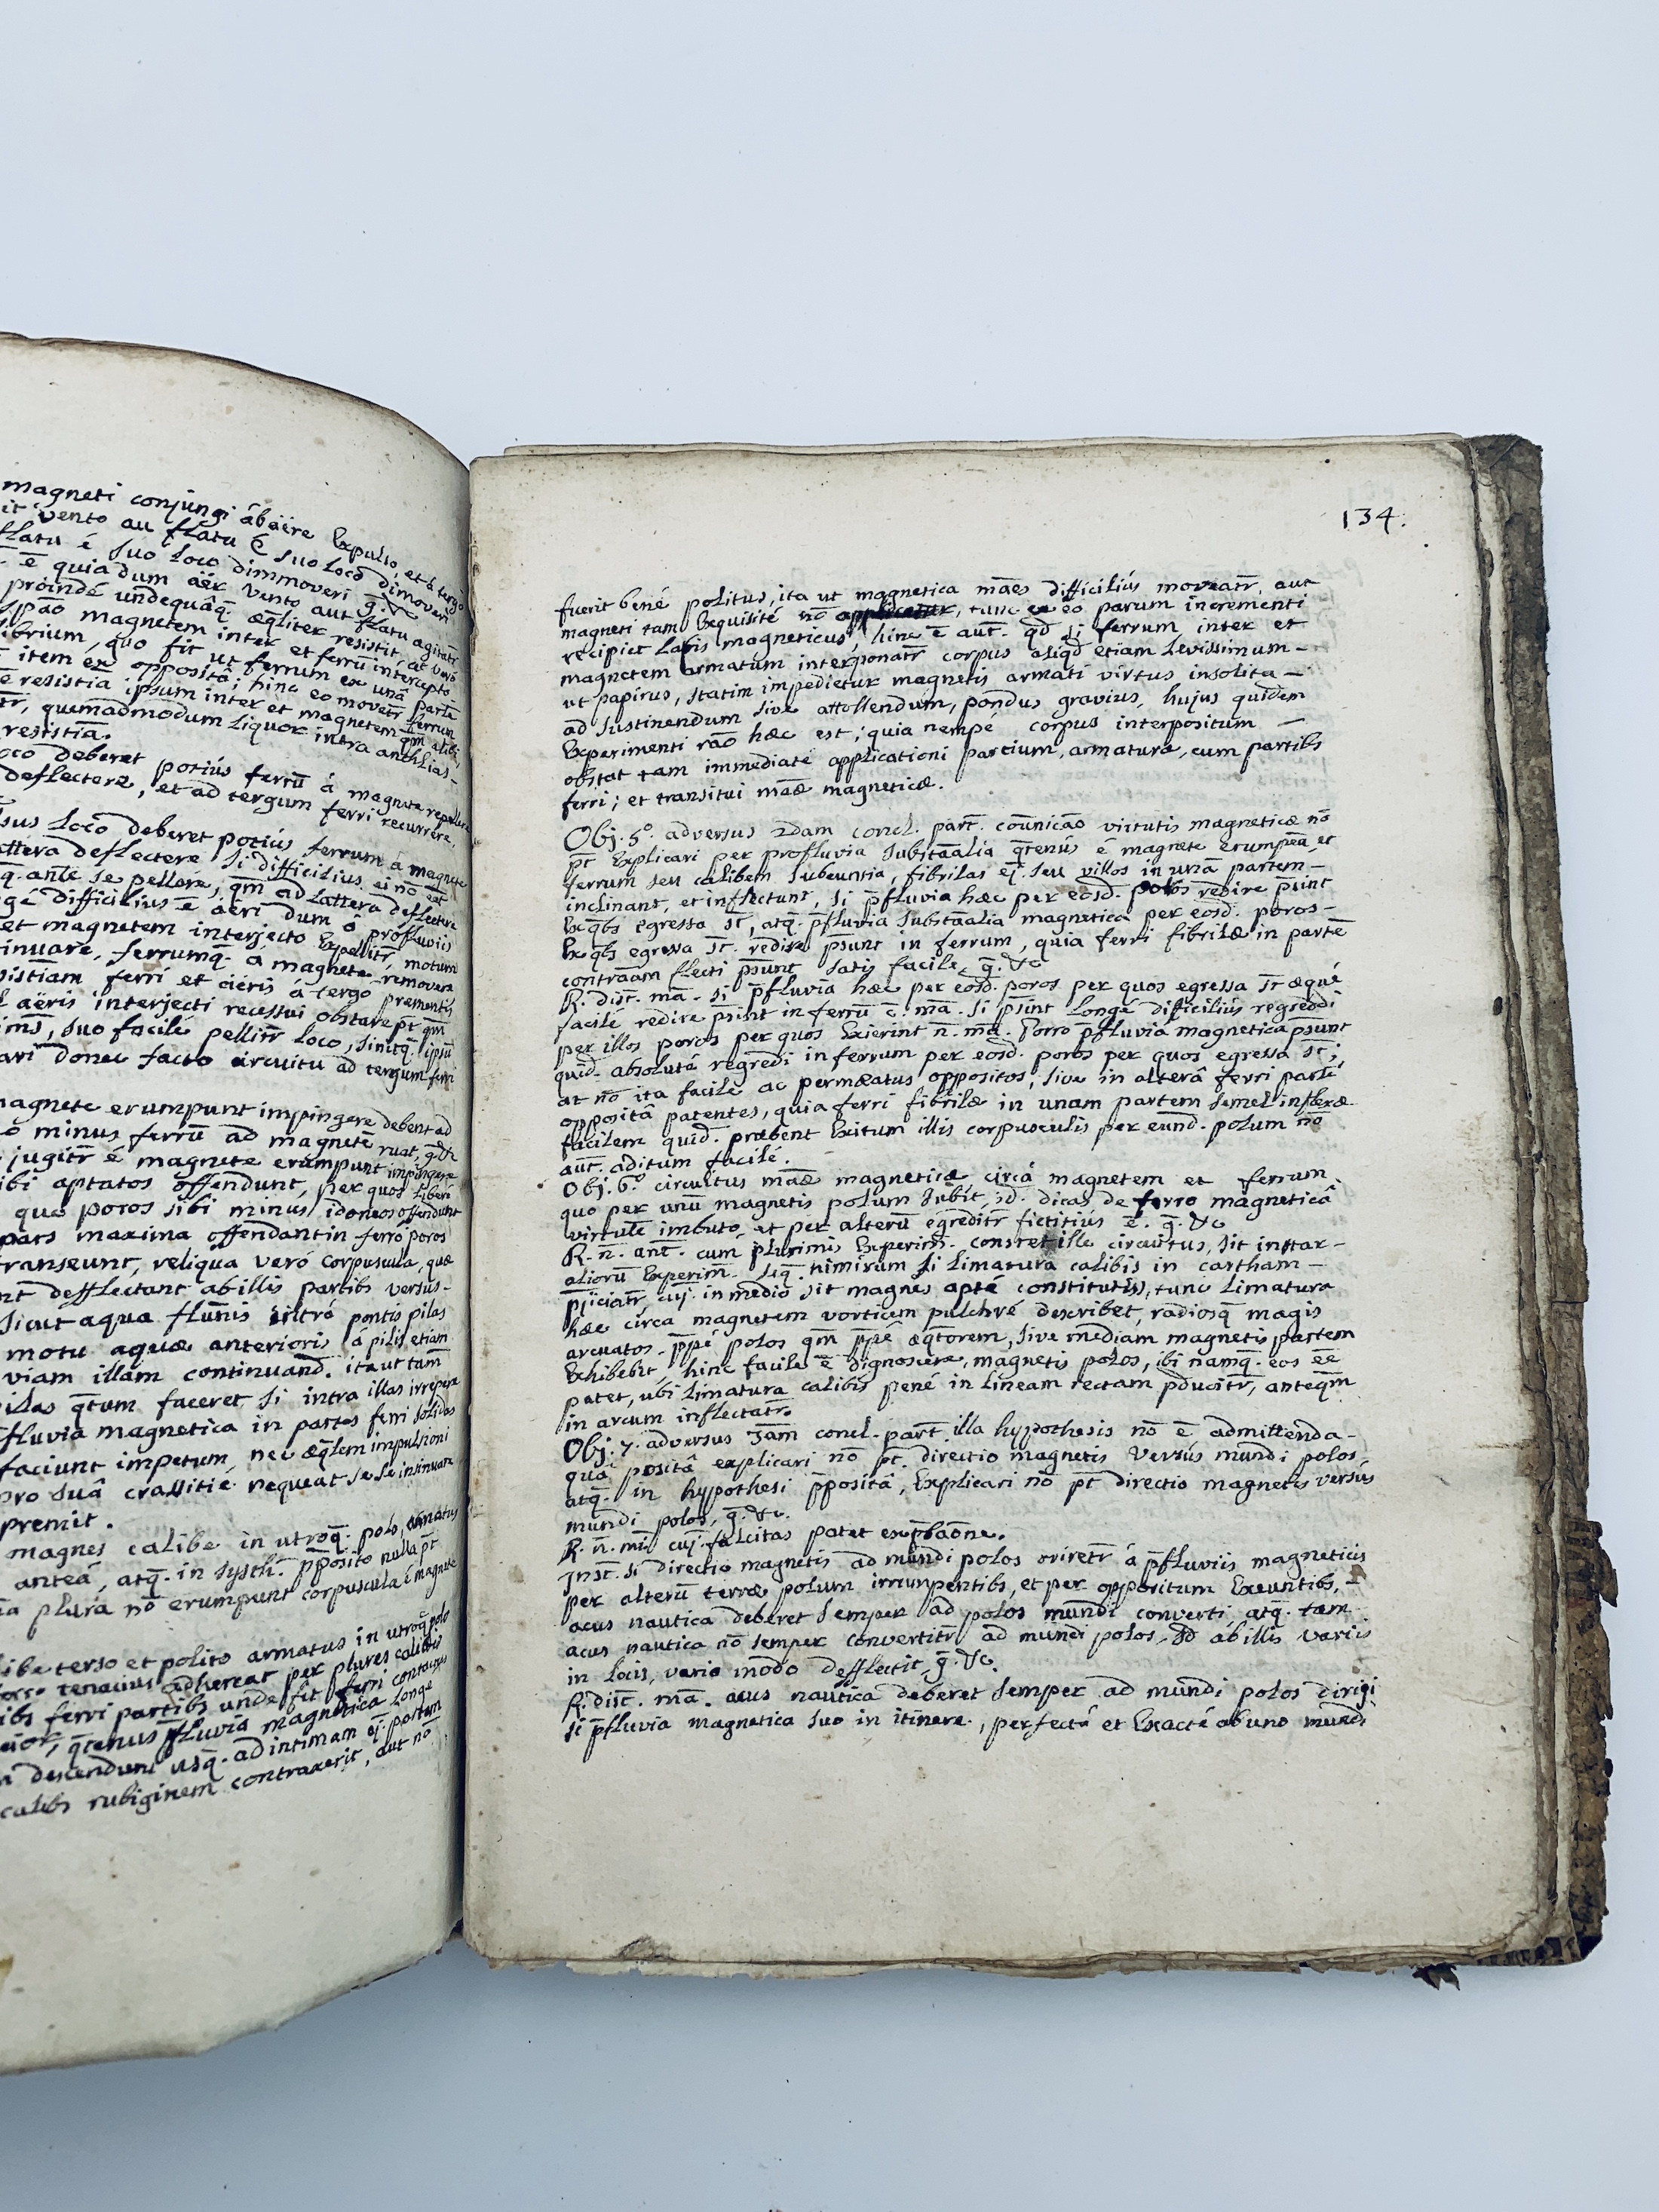 magneti conjungi ab aëre Expulso, et á tergo
it vento au flatu é suo loco dimoveri
flatu é suo loco dimmoveri g̃. &c
ē quia dum aër vento aut flatu agitatr̄
proindé undequâq̃. æq̄liter resistit, at veró
spāo magnetem inter et ferrū intercepto
ibrium, quo fit ut ferrum ex unâ parte
item ex oppositâ; hinc eo movetr̄ ferrum
ē resistīa ipsum inter et magnetem qm̄ alibi
tr̄, quemadmodum liquor intra anthlias-
resistīā.
oco deberet potiús ferrū á magnete repellere
deflectere, et ad tergum ferri recurrere,
sus loco deberet potiús ferrum á magnete
attera deflectere si difficilius ei nō est
q̄. ante se pellere, qm̄ ad lattera deflectere
gé difficilius ē aëri dum á profluviis
et magnetem interjecto Expellitr̄, motum
inuare, ferrumq̄. a magnete removere
sistīam ferri et aëris á tergo prementis
aëris interjecti recessui obstare pt̄ qm̄
ims̄, suo facilé pellitr̄ loco, sinitq̄. ipsū
ari donec facto circuitu ad tergum ferri
magnete erumpunt impingere debent ad
o minus ferrū ad magnetē ruat, g̃. &c
jugitr̄ é magnete erumpunt impingere
ibi aptatos offendunt, per quos liberi
quæ poros sibi minus idoneos offendunt
pars maxima offendant in ferro poros
transeunt, reliqua veró corpuscula, quæ
nt defflectant ab illis partibs versus-
sicut aqua flum̄is intrá pontis pilas
motu aquæ anterioris á pilis etiam
viam illam continuand. ita ut tam̄
ilas q̄tum faceret si intra illas irrepere
fluvia magnetica in partes ferri solidas
faciunt impetum, nec æq̄lem impulsioni
pro suâ crassitie nequeat se se insinuare
premit.
magnes calibe in utroq̄. polo, armatus
anteá, atq̄. in systh̄. p̄posito nulla pt̄
ia plura nō erumpunt corpuscula é magnete
libe terso et polito armatus in utroq̄ polo
ferro tenaciús adhereat per plures calibis
ibs ferri partibs unde fit ferri contactus
uior, q̄tenus p̄fluvia magnetica longé
descendunt usq̄. ad intimam ej. partem
calibs rubiginem contraxerit, aut nō
134.
fuerit bené politus, ita ut magnetica mães difficiliús moveatr̄, aut
magneti tam Exquisité nō applicetur, tunc ex eo parum incrementi
recipiet lapis magneticus, hinc ē aut̄. q̄d si ferrum inter et
magnetem armatum interponatr̄ corpus aliq̄d etiam levissimum-
ut papirus, statim impedietur magnetis armati virtus insolita-
ad sustinendum sive attollendum, pondus gravius, hujus quidem
Experimenti rāo hæc est; quia nempé corpus interpositum -
obstat tam immediaté applicationi partium, armaturæ, cum partibs
ferri; et transitui māæ magneticæ.
Obj. 5º. adversus 2dam concl. part̄. coūnicāo virtutis magneticæ nō
pt̄ Explicari per profluvia substāalia q̄tenús é magnete erumpēa, et
ferrum seu calibem subeuntia, fibrilas ej. seu villos in unā partem-
inclinant, et inflectunt, si p̄fluvia hæc per eosd. polos redire ps̄int
Ex q̄bs egressa st̄, atq̄. p̄fluvia substāalia magnetica per eosd. poros-
Ex q̄bs egressa st̄. redire ps̄unt in ferrum, quia ferri fibrilæ in partē
contrāam flecti ps̄unt satis facilé, g̃. &c
R. dist̄. mā. si p̄fluvia hæc per eosd. poros per quos egressa st̄ æqué
facilé redire ps̄int in ferrū c̄. mā. si ps̄int longé difficiliús regredi
per illos poros per quos Exierint n̄. mā. Porro p̄fluvia magnetica ps̄unt
quid. absoluté regredi in ferrum per eosd. poros per quos egressa st̄;
at nō ita facilé ac permæatus oppositos, sive in alterâ ferri parte
oppositâ patentes, quia ferri fibrilæ in unam partem semel inflexæ
facilem quid. præbent Exitum illis corpusculis per eund. polum nō
aut̄. aditum facilé.
Obj. 6º. circuitus māæ magneticæ, circâ magnetem et ferrum
quo per unū magnetis polum subit, id. dicas de ferro magneticâ
virtute imbuto, et per alterū egreditr̄ fictitiús ē. g̃. &c
R. n̄. ant̄. cum plurimis Experim̄. constet ille circuitus, sit instar-
aliorū Experim̄. seq̄. nimirum si limatura calibis in cartham-
p̄jiciatr̄, cuj. in medio sit magnes apté constitutus, tunc limatura
hæc circa magnetem vorticem pulchré describet, radiosq̄ magis
arcuatos. p̄pé polos qm̄ p̄pé æq̄torem, sive mediam magnetis partem
Exhibebit, hinc facile ē dignoscere, magnetis polos, ibi namq̄. eos ēe
patet, ubi limatura calibis pené in lineam rectam p̄ducitr̄, anteq̄m
in arcum inflectatr̄.
Obj. 7. adversus 3am concl. part̄. illa hypothesis nō ē admittenda-
quâ positâ explicari nō pt̄ directio magnetis versús mundi polos
atq̄. in hypothesi p̄positâ, Explicari nō pt̄ directio magnetis versús
mundi polos, g̃. &c.
R. n̄. mī. cuj. falcitas patet ex p̄bāone.
Inst̄. si directio magnetis ad mundi polos oriretr̄ á p̄fluviis magneticis
per alterū terræ polum irrumpentibs, et per oppositum Exeuntibs, -
acus nautica deberet semper ad polos mundi converti atq̄. tam
acus nautica nō semper convertitr̄ ad mundi polos, sd ab illis variis
in locis, vario modo defflectit, g̃. &c.
R. dist̄. mā. acus nautica deberet semper ad mundi polos dirigi
si p̄fluvia magnetica suo in itinere, perfecté et Exacté ab uno mundi